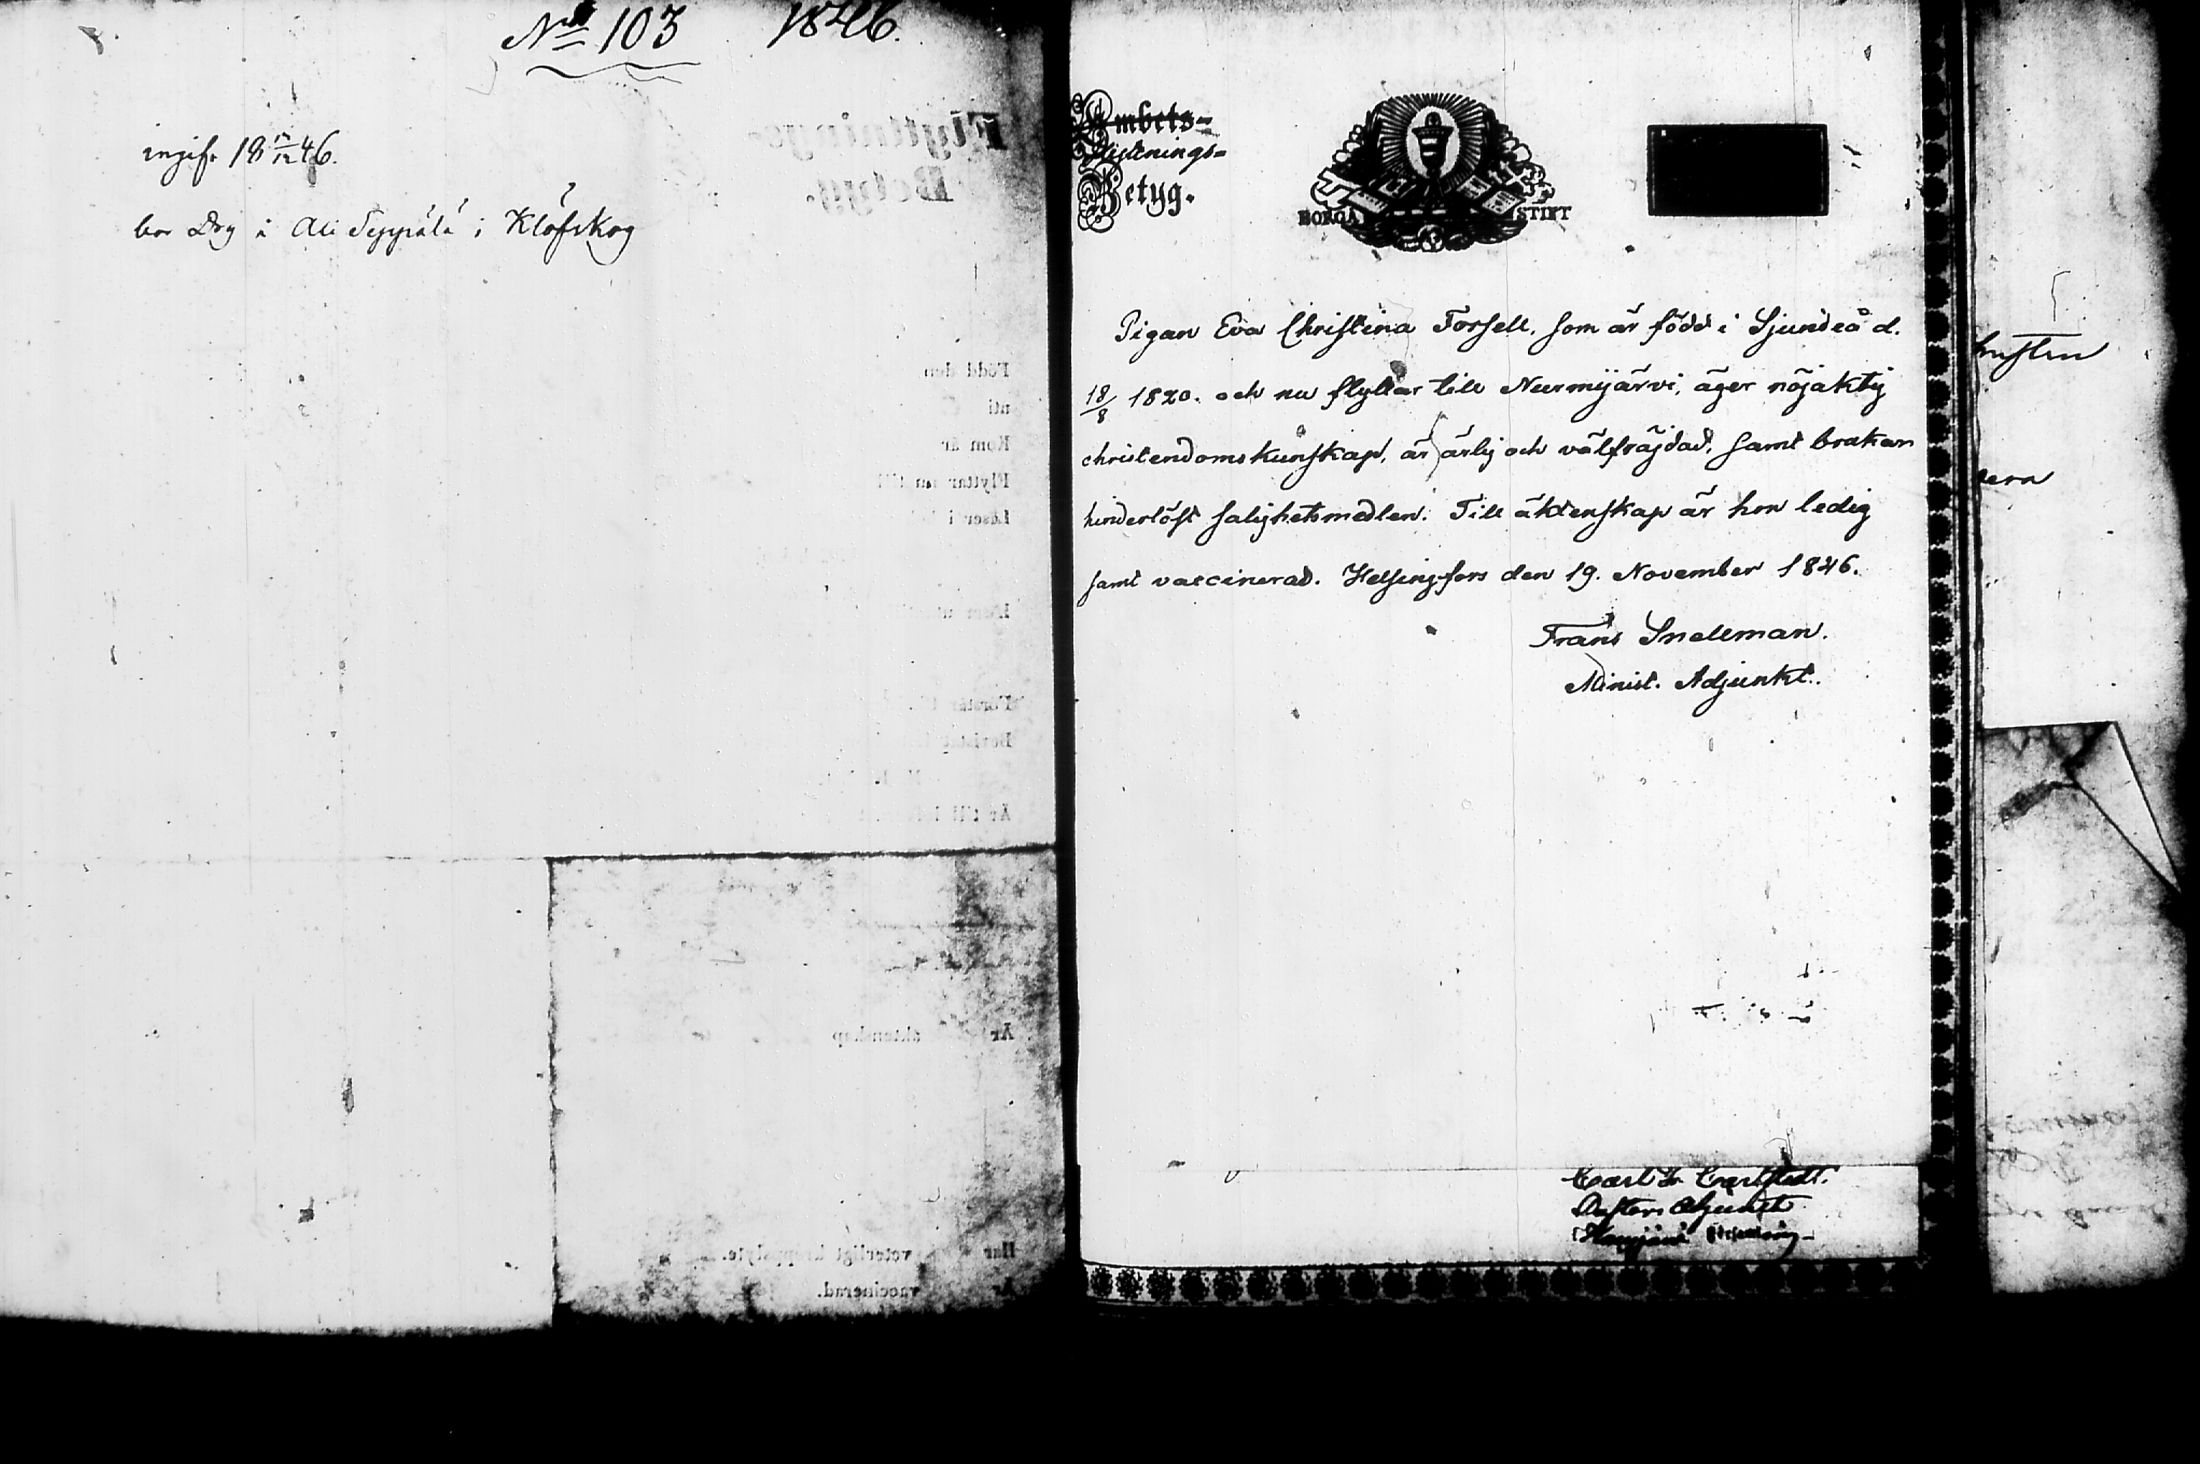 No 103 1846.
ingif. 18 17/12 46.
bor Drg i Ali Seppälä i Klöfskog
Flyttnings-
Betyg.
Född den
uti
Kom år
Flyttar
Läser i
Är äktenskap
Har veterligt kroppslyte.
vaccinerad.
Embets-
Flyttnings-
Betyg.
BORGÅ STIFT
Pigan Eva Christina Forsell, som är född i Sjundeå d.
18/8 1820. och nu flyttar till Nurmijärvi, äger nöjaktig
christendomskunskap, är ärlig och välfräjdad, samt brukar
hinderlöst salighetsmedlen. Till äktenskap är hon ledig
samt vaccinerad. Helsingfors den 19. November 1846.
Frans Snellman.
Minist. Adjunkt.
Carl Carlstedt.